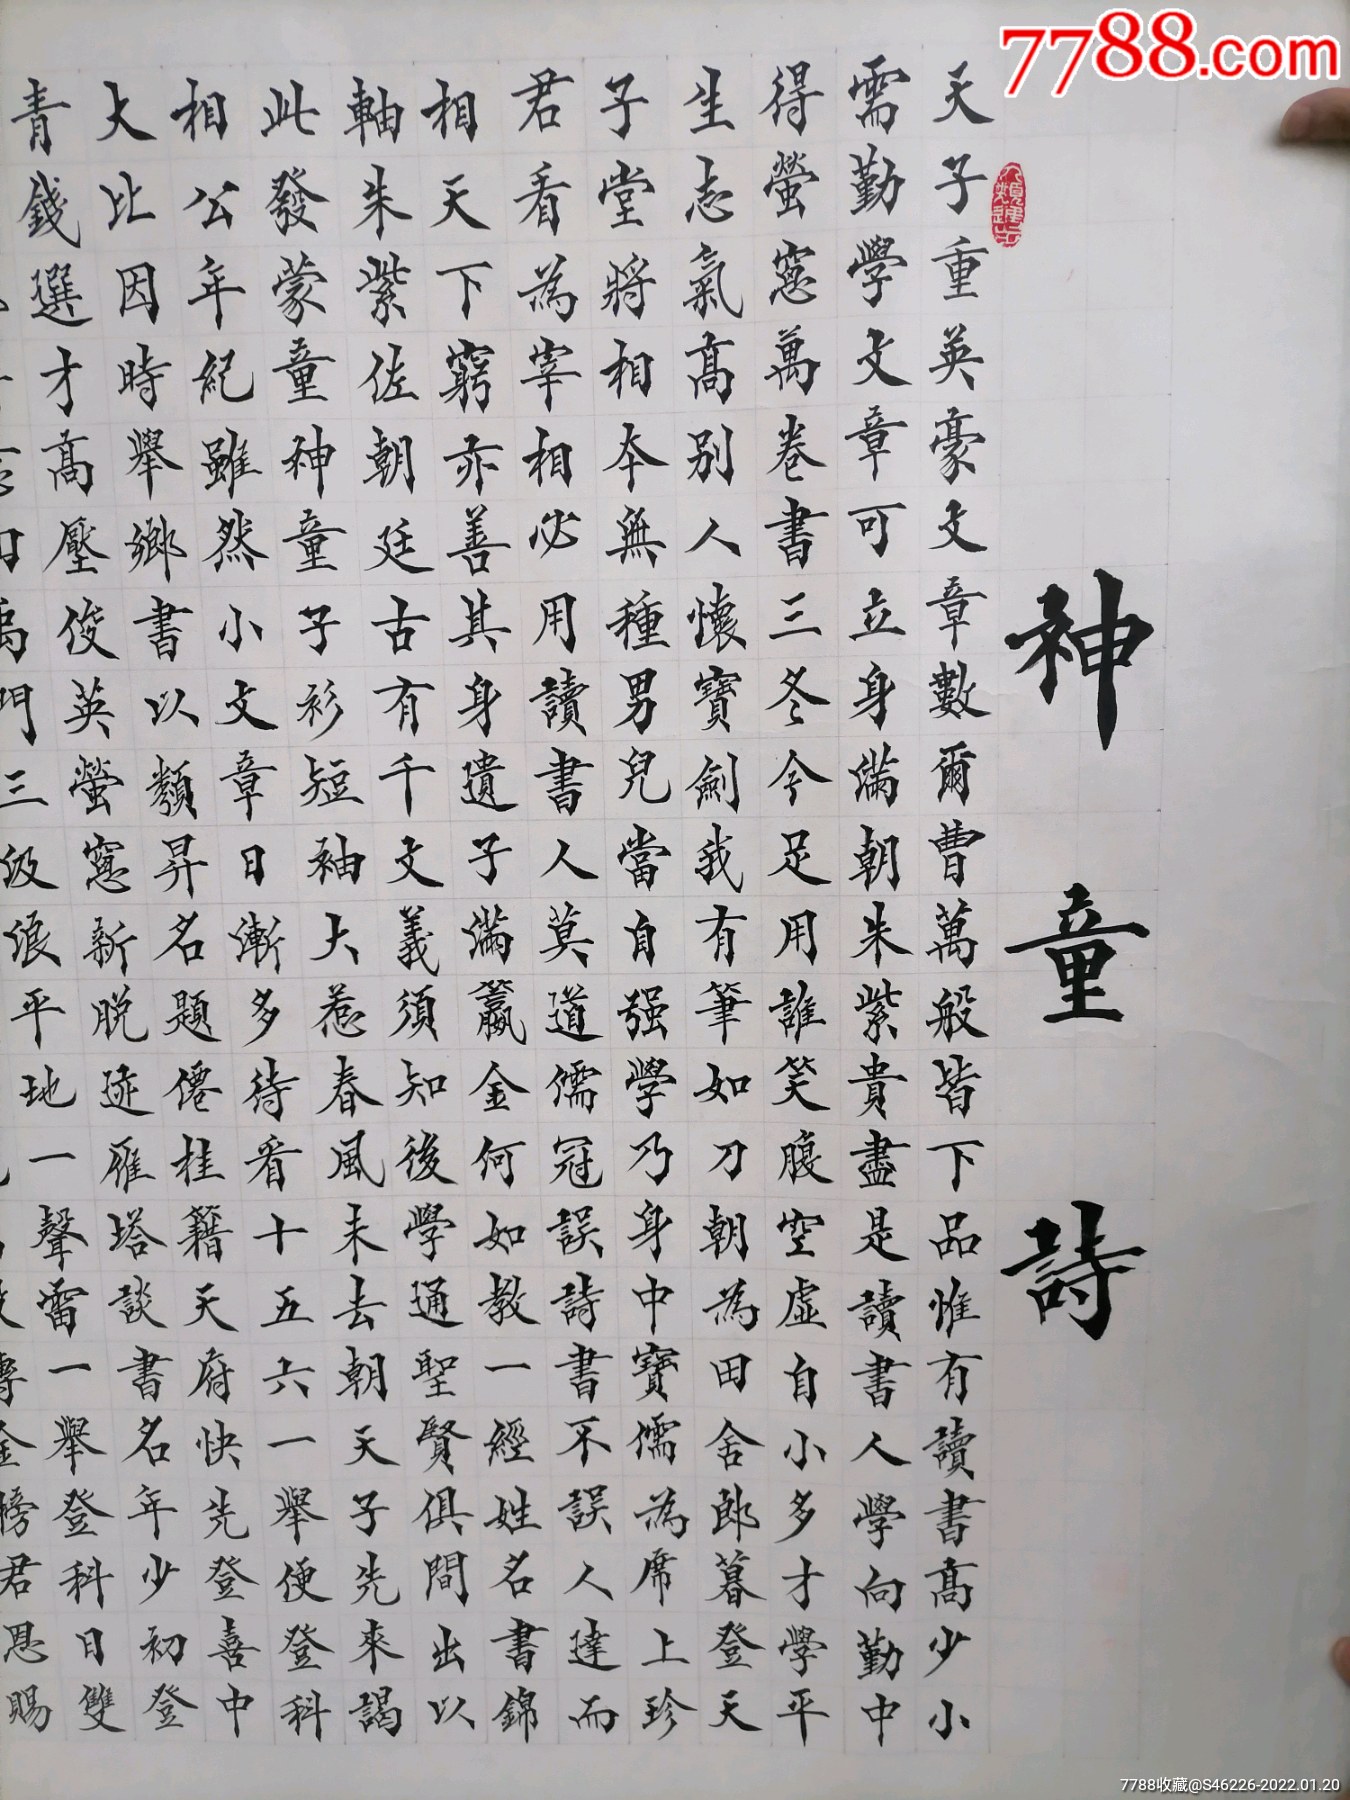 神童詩
天子重英豪文章數爾曹萬般皆下品惟有讀書高少小
需勤學文章可立身滿朝朱紫貴盡是讀書人學向勤中
得螢窻萬卷書三冬今足用誰笑腹空虛自小多才學平
生志氣高別人懷寶劍我有筆如刀朝為田舍郎暮登天
子堂將相本無種男兒當自强學乃身中寶儒為席上珍
君看為宰相必用讀書人莫道儒冠誤詩書不誤人達而
相天下窮亦善其身遺子滿籯金何如教一經姓名書錦
軸朱紫佐朝廷古有千文義須知後學通聖賢俱間出以
此發蒙童神童子衫短袖大惹春風未去朝天子先來謁
相公年紀雖然小文章日漸多待看十五六一舉便登科
大比因時舉鄉書以類昇名題僊桂籍天府快先登喜中
青錢選才高壓俊英螢窻新脫迹雁塔談書名年少初登
禹門三級浪平地一聲雷一舉登科日雙
金榜君恩賜
7788.com
7788收藏@S46226-2022.01.20